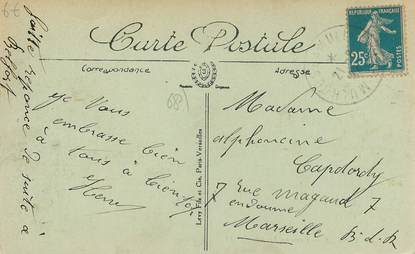 Carte Postale
Correspondance
Adresse
REPUBLIQUE FRANÇAISE
25c
POSTES
faites réponse de suite à
Belfort
Je vous
embrasse bien
tous à bientôt
Madame
alphoncine
Capdordy
7 rue Magaud 7
endoume
Marseille B-d-R
Levy Fils et Cie, Paris-Versailles